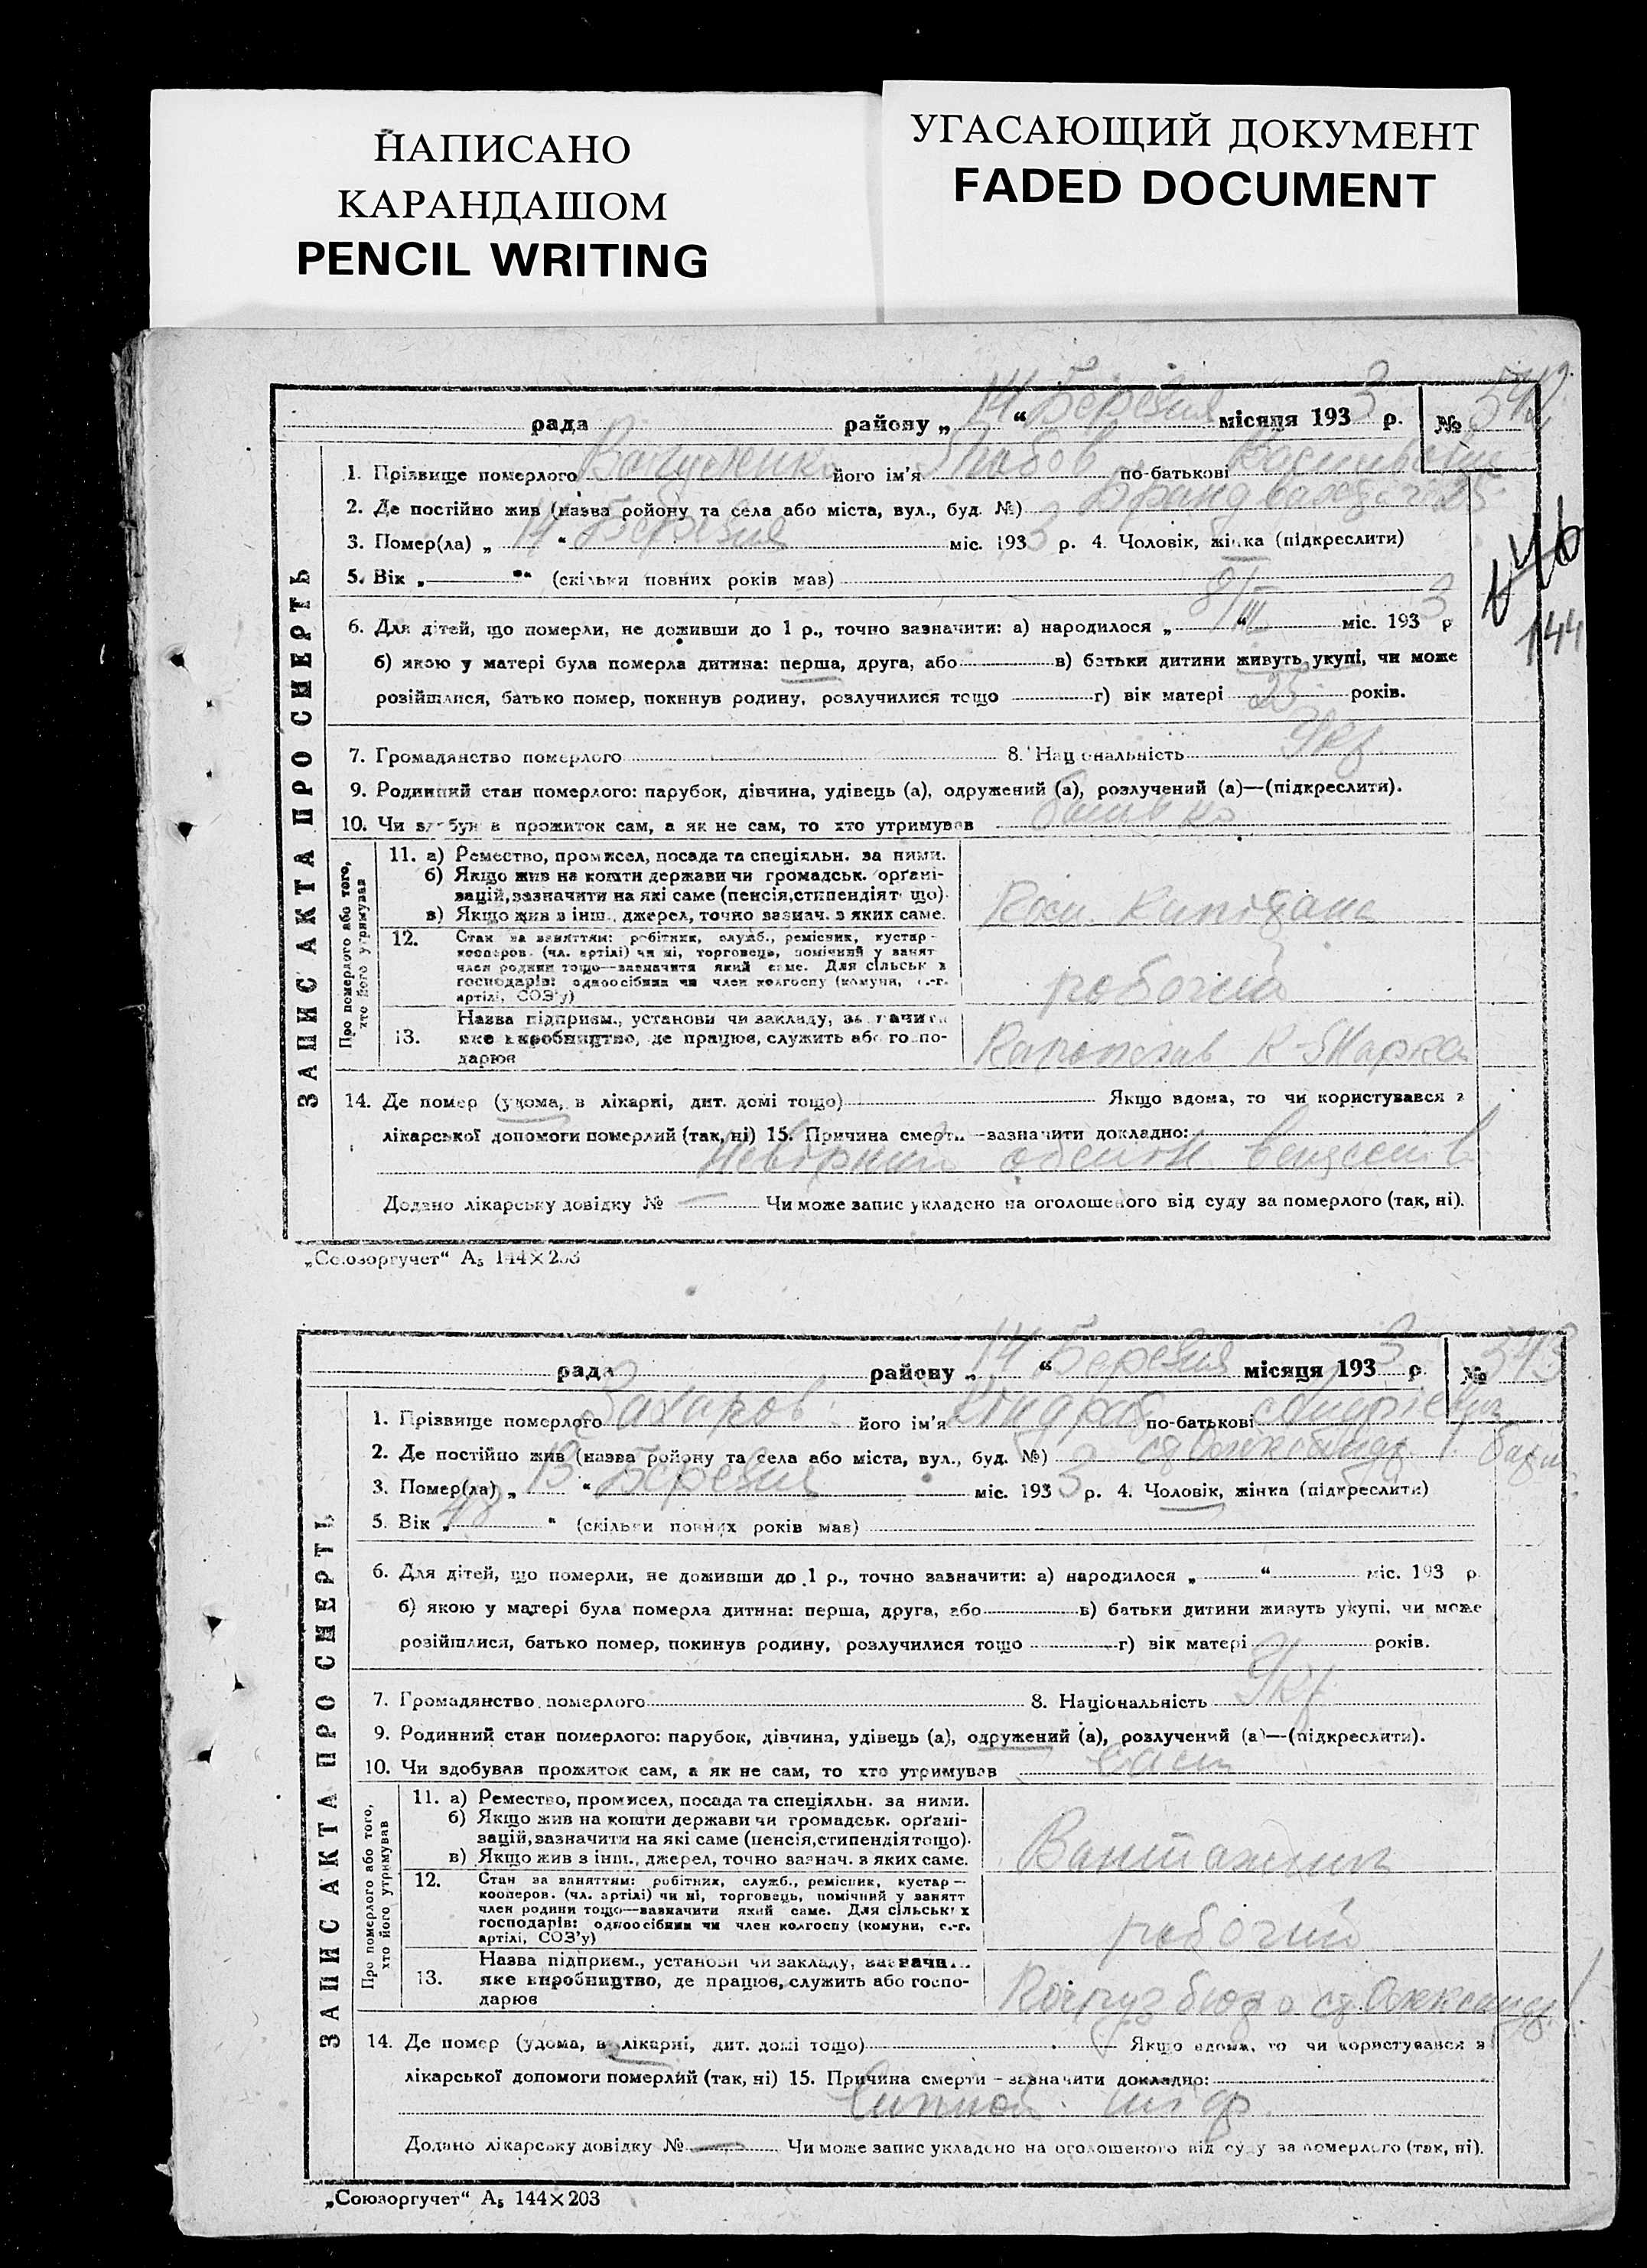 НАПИСАНО
КАРАНДАШОМ
PENCIL WRITING
УГАСАЮЩИЙ ДОКУМЕНТ
FADED DOCUMENT
ЗАПИС АКТА ПРО СМЕРТЬ
рада району „ 14 “ Березня місяця 1933 р. № 342
1. Прізвище померлого його ім'я Любов по-батькові
2. Де постійно жив (назва ройону та села або міста, вул., буд. №)
3. Помер(ла) „ 14 “ Березня міс. 1933 р. 4. Чоловік, жінка (підкреслити)
5. Вік „ “ (скільки повних років мав)
146
144
6. Для дітей, що померли, не доживши до 1 р., точно зазначити: а) народилося „ 8/III “ міс. 1933 р
б) якою у матері була померла дитина: перша, друга, або в) батьки дитини живуть укупі, чи може
розійшлися, батько помер, покинув родину, розлучилися тощо г) вік матері 25 років.
7. Громадянство померлого 8. Національність Укр
9. Родинний стан померлого: парубок, дівчина, удівець (а), одружений (а), розлучений (а)—(підкреслити).
10. Чи здобував прожиток сам, а як не сам, то хто утримував батько
Про померлого або того, хто його утримував
11. а) Ремество, промисел, посада та спеціяльн. за ними.
б) Якщо жив на кошти держави чи громадськ. органі-
зацій, зазначити на які саме (пенсія, стипендія тощо).
в) Якщо жив з інш., джерел, точно зазнач. з яких саме.
12. Стан за заняттям: робітник, служб., ремісник, кустар—
кооперов. (чл. артілі) чи ні, торговець, помічний у занятт
член родини тощо—зазначити який саме. Для сільськ х
господарів: одноосібник чи член колгоспу (комуни, с.-г.
артілі, СОЗ'у)
робочий
13. Назва підприєм., установи чи закладу, зазначити
яке виробництво, де працює, служить або госпо-
дарює
14. Де помер (удома, в лікарні, дит. домі тощо) Якщо вдома, то чи користувався з
лікарської допомоги померлий (так, ні) 15. Причина смерти—зазначити докладно:
обмін
Додано лікарську довідку № — Чи може запис укладено на оголошеного від суду за померлого (так, ні).
„Союзоргучет“ А₅ 144×203
ЗАПИС АКТА ПРО СМЕРТЬ
рада району „ 14 “ Березня місяця 1933 р № 343
1. Прізвище померлого Захаров його ім'я Кіндрат по-батькові
2. Де постійно жив (назва ройону та села або міста, вул., буд. №)
3. Помер(ла) „ 13 “ Березня міс. 1933 р. 4. Чоловік, жінка (підкреслити)
5. Вік „ 48 “ (скільки повних років мав)
6. Для дітей, що померли, не доживши до 1 р., точно зазначити: а) народилося „ “ міс. 193 р.
б) якою у матері була померла дитина: перша, друга, або в) батьки дитини живуть укупі, чи може
розійшлися, батько помер, покинув родину, розлучилися тощо г) вік матері років.
7. Громадянство померлого 8. Національність Укр
9. Родинний стан померлого: парубок, дівчина, удівець (а), одружений (а), розлучений (а)—(підкреслити).
10. Чи здобував прожиток сам, а як не сам, то хто утримував сам
Про померлого або того, хто його утримував
11. а) Ремество, промисел, посада та спеціяльн. за ними.
б) Якщо жив на кошти держави чи громадськ. органі-
зацій, зазначити на які саме (пенсія, стипендія тощо).
в) Якщо жив з інш., джерел, точно зазнач. з яких саме.
Вантажник
12. Стан за заняттям: робітник, служб., ремісник, кустар—
кооперов. (чл. артілі) чи ні, торговець, помічний у занятт
член родини тощо—зазначити який саме. Для сільськ х
господарів: одноосібник чи член колгоспу (комуни, с.-г.
артілі, СОЗ'у)
робочий
13. Назва підприєм., установи чи закладу, зазначи
яке виробництво, де працює, служить або госпо-
дарює
14. Де помер (удома, в лікарні, дит. домі тощо) Якщо вдома, то чи користувався з
лікарської допомоги померлий (так, ні) 15. Причина смерти—зазначити докладно:
тиф
Додано лікарську довідку № — Чи може запис укладено на оголошеного від суду за померлого (так, ні).
„Союзоргучет“ А₅ 144×203